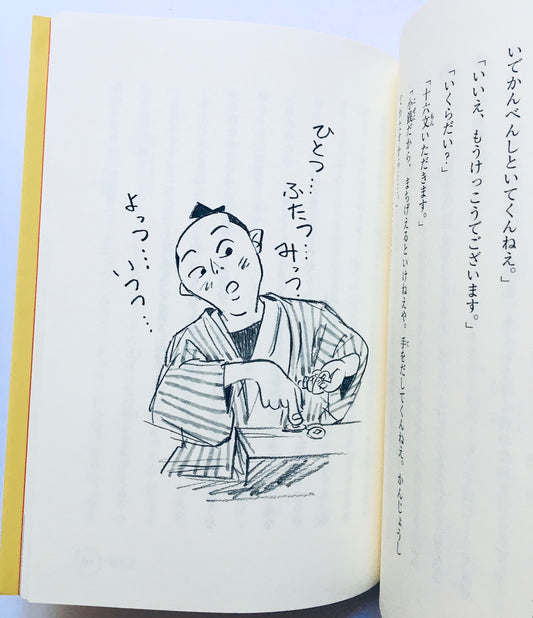 いでかんべんしといてくんねえ。」
「いいえ、もうけっこうでございます。」
「いくらだい？」
「十六文いただきます。」
「小銭だから、まちげえるといけねえや。手をだしてくんねえ。かんじょうし
ひとつ…
ふたつ…
みっつ…
よっつ…
いつつ…